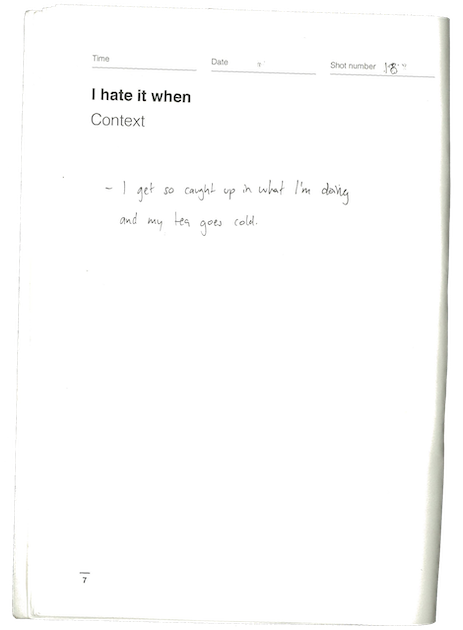 Time Date Shot number 18
I hate it when
Context
- I get so caught up in what I'm doing
and my tea goes cold.
7